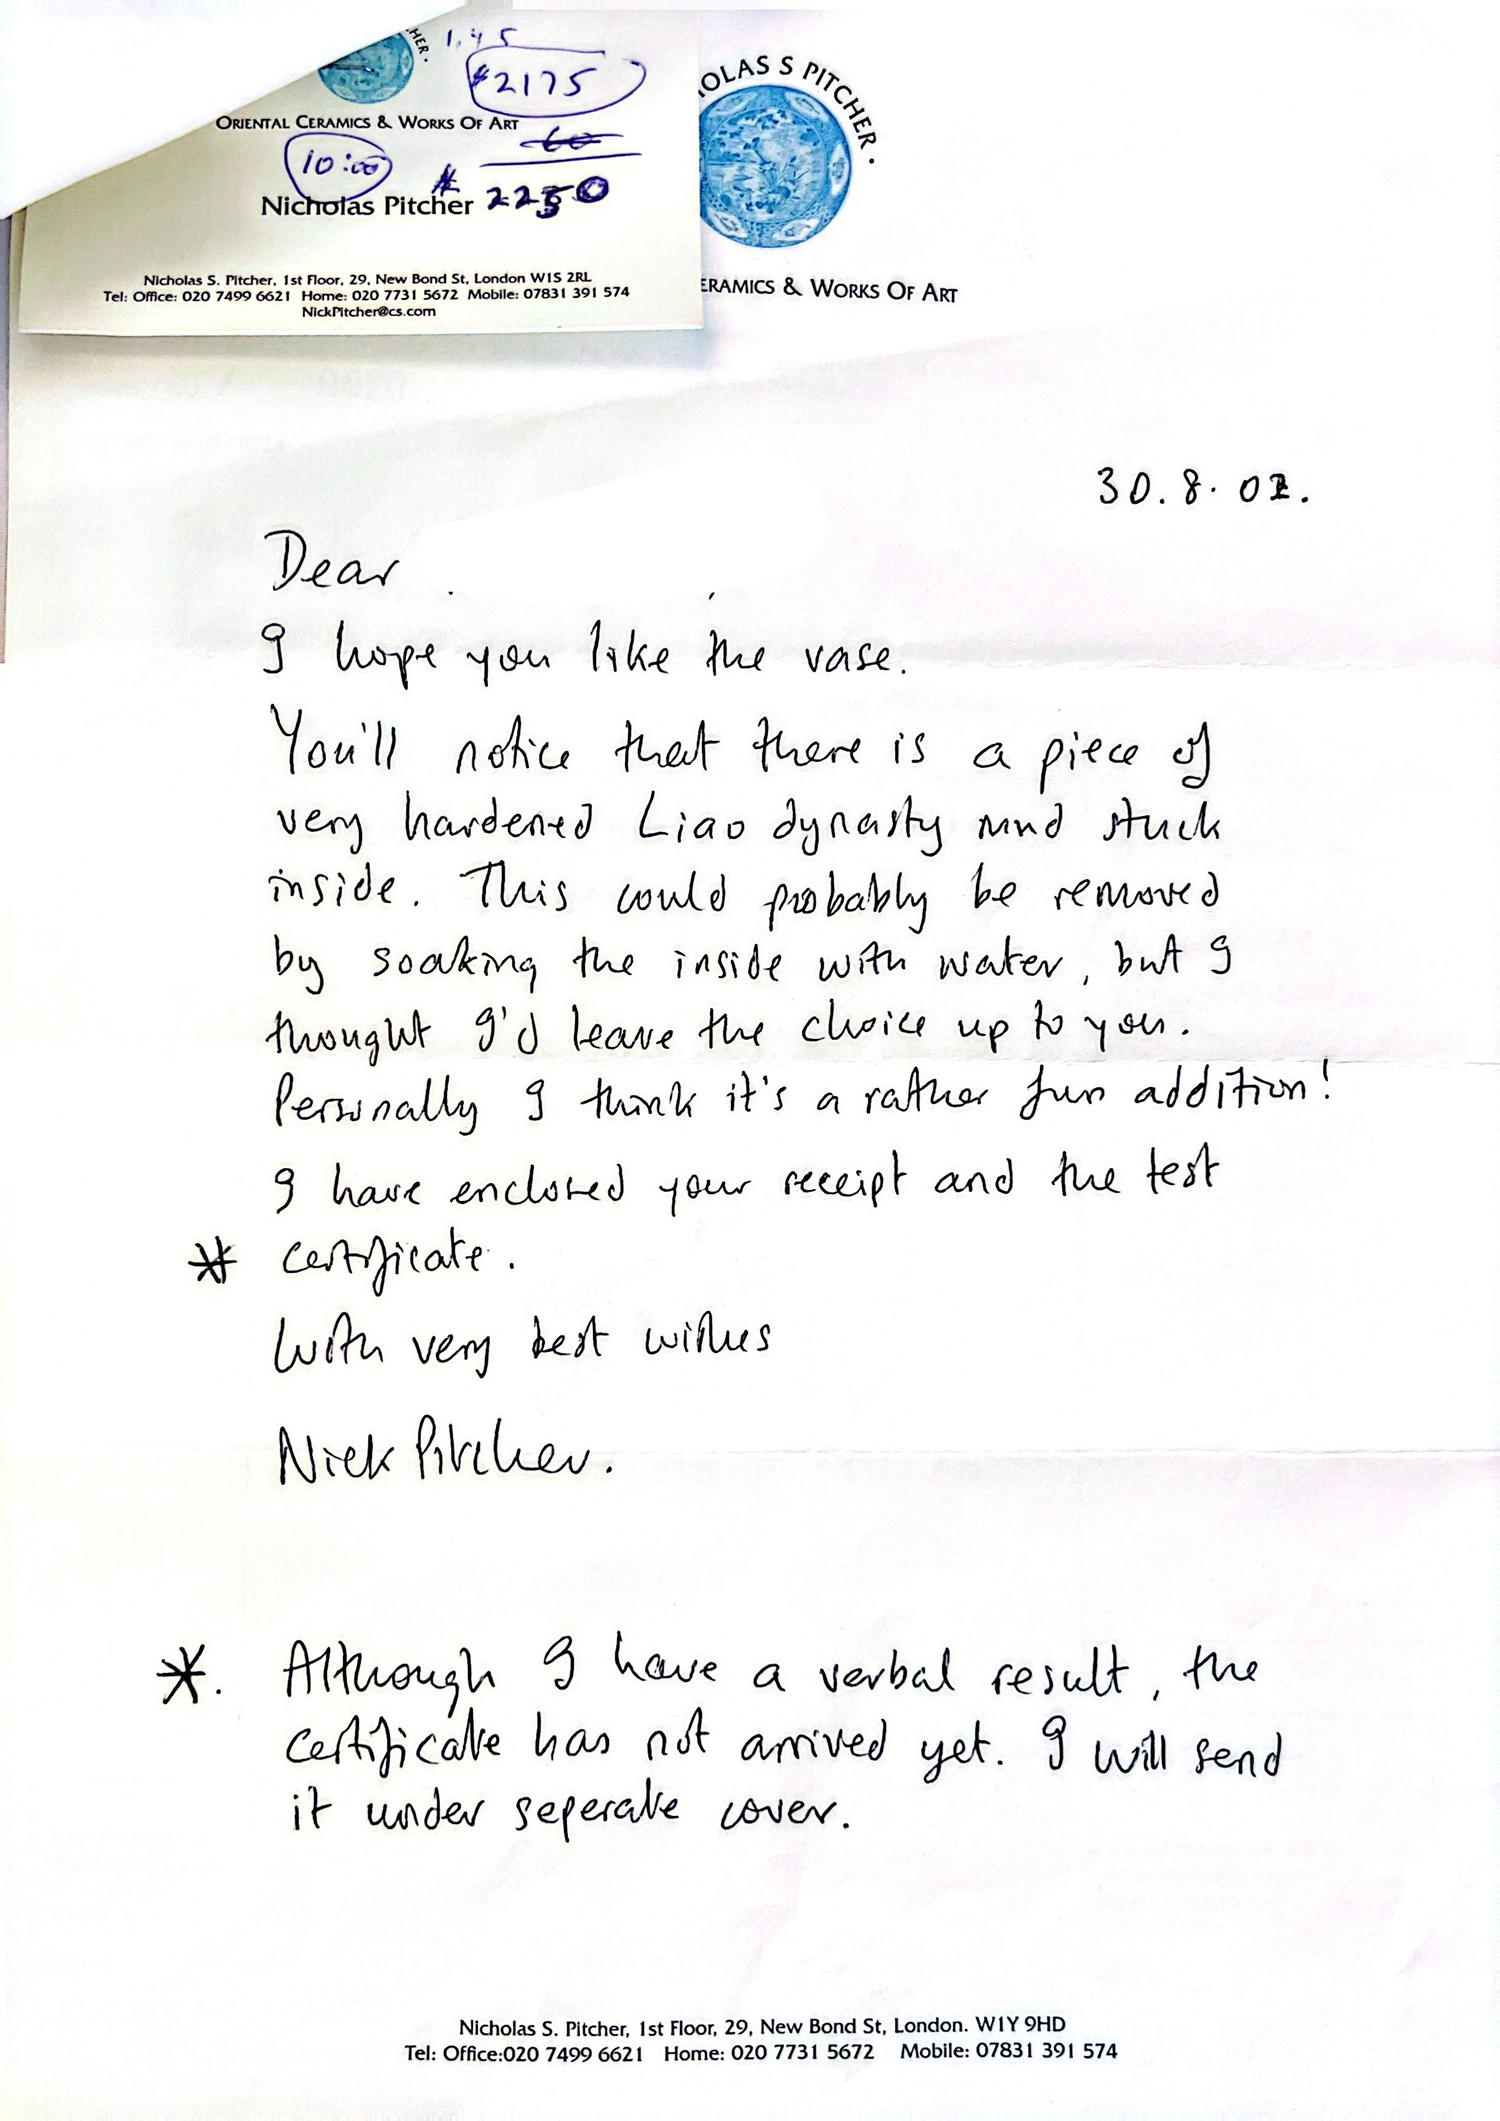 HER.
1.45
$2175
ORIENTAL CERAMICS & WORKS OF ART
60
10:00
Nicholas Pitcher
2250
Nicholas S. Pitcher, 1st Floor, 29, New Bond St, London W1S 2RL
Tel: Office: 020 7499 6621 Home: 020 7731 5672 Mobile: 07831 391 574
NickPitcher@cs.com
OLAS S PITCHER.
ERAMICS & WORKS OF ART
30.8.02.
Dear
I hope you like the vase.
You'll notice that there is a piece of
very hardened Liao dynasty mud stuck
inside. This could probably be removed
by soaking the inside with water, but I
thought I'd leave the choice up to you.
Personally I think it's a rather fun addition!
I have enclosed your receipt and the test
* certificate.
With very best wishes
Nick Pitcher.
*. Although I have a verbal result, the
certificate has not arrived yet. I will send
it under seperate cover.
Nicholas S. Pitcher, 1st Floor, 29, New Bond St, London. W1Y 9HD
Tel: Office:020 7499 6621 Home: 020 7731 5672 Mobile: 07831 391 574